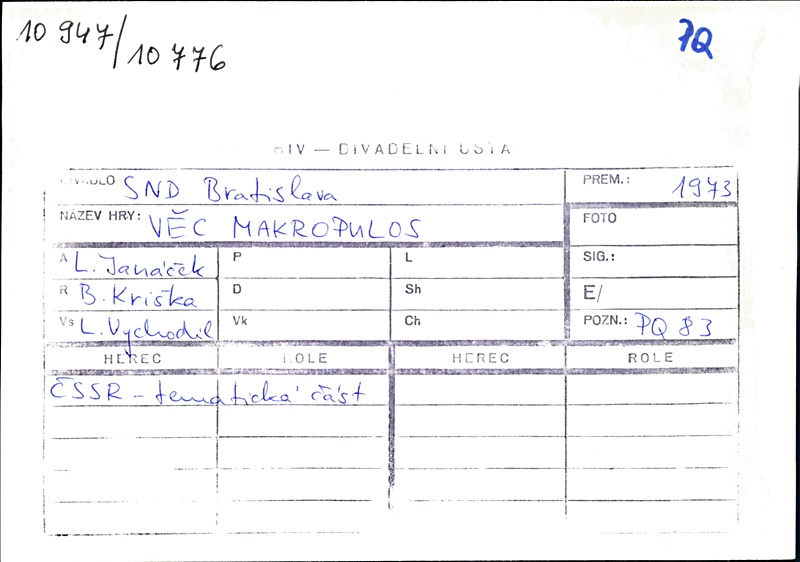 10 947/10 776
PQ
HIV — DIVADELNÍ ÚSTA
DIVADLO SND Bratislava PREM.: 1973
NÁZEV HRY: VĚC MAKROPULOS FOTO
A L. Janáček P L SIG.:
R B. Kriška D Sh E/
Vs L. Vychodil Vk Ch POZN.: PQ 83
HEREC ROLE HEREC ROLE
ČSSR – tematická část